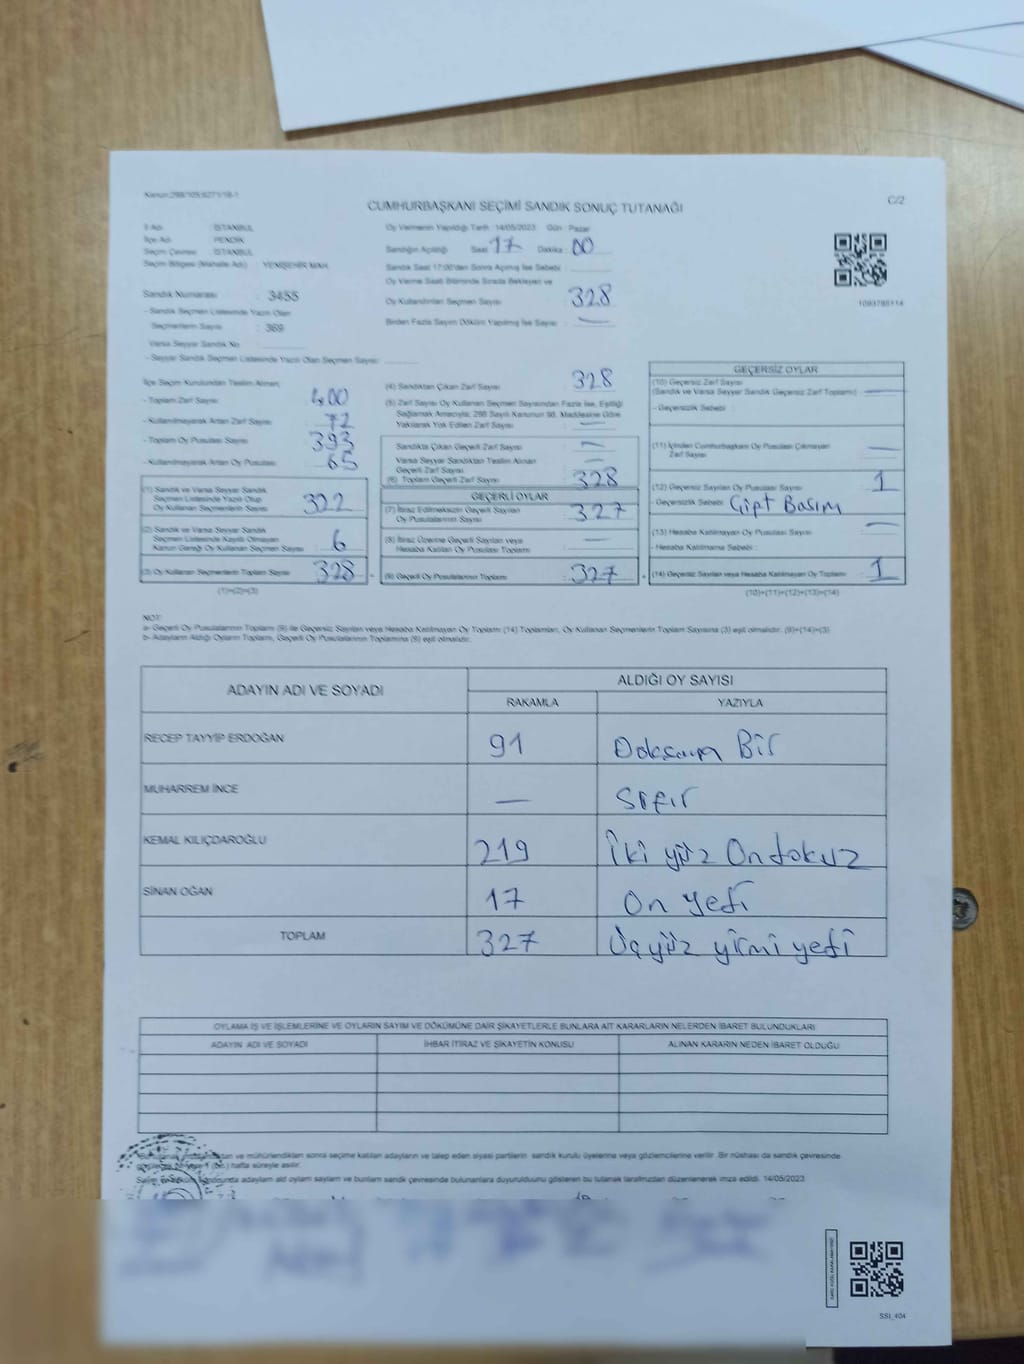 Kanun:298/105,6271/18-1
C/2
CUMHURBAŞKANI SEÇİMİ SANDIK SONUÇ TUTANAĞI
İl Adı : İSTANBUL
İlçe Adı : PENDİK
Seçim Çevresi : İSTANBUL
Seçim Bölgesi (Mahalle Adı) : YENİŞEHİR MAH.
Sandık Numarası : 3455
- Sandık Seçmen Listesinde Yazılı Olan
Seçmenlerin Sayısı : 369
Varsa Seyyar Sandık No :
- Seyyar Sandık Seçmen Listesinde Yazılı Olan Seçmen Sayısı :
Oy Vermenin Yapıldığı Tarih : 14/05/2023 Gün : Pazar
Sandığın Açıldığı Saat : 17 Dakika : 00
Sandık Saat 17:00'den Sonra Açılmış İse Sebebi :
Oy Verme Saati Bitiminde Sırada Bekleyen ve
Oy Kullandırılan Seçmen Sayısı : 328
Birden Fazla Sayım Döküm Yapılmış İse Sayısı : —
1093785114
İlçe Seçim Kurulundan Teslim Alınan;
- Toplam Zarf Sayısı : 400
- Kullanılmayarak Artan Zarf Sayısı : 72
- Toplam Oy Pusulası Sayısı : 393
- Kullanılmayarak Artan Oy Pusulası : 65
(1) Sandık ve Varsa Seyyar Sandık
Seçmen Listesinde Yazılı Olup
Oy Kullanan Seçmenlerin Sayısı : 322
(2) Sandık ve Varsa Seyyar Sandık
Seçmen Listesinde Kayıtlı Olmayan
Kanun Gereği Oy Kullanan Seçmen Sayısı : 6
(3) Oy Kullanan Seçmenlerin Toplam Sayısı : 328
(1)+(2)=(3)
(4) Sandıktan Çıkan Zarf Sayısı : 328
(5) Zarf Sayısı Oy Kullanan Seçmen Sayısından Fazla İse, Eşitliği
Sağlamak Amacıyla, 298 Sayılı Kanunun 98. Maddesine Göre
Yakılarak Yok Edilen Zarf Sayısı : —
Sandıkta Çıkan Geçerli Zarf Sayısı : —
Varsa Seyyar Sandıktan Teslim Alınan
Geçerli Zarf Sayısı : —
(6) Toplam Geçerli Zarf Sayısı : 328
GEÇERLİ OYLAR
(7) İtiraz Edilmeksizin Geçerli Sayılan
Oy Pusulalarının Sayısı : 327
(8) İtiraz Üzerine Geçerli Sayılan veya
Hesaba Katılan Oy Pusulası Toplamı : —
(9) Geçerli Oy Pusulalarının Toplamı : 327
GEÇERSİZ OYLAR
(10) Geçersiz Zarf Sayısı
(Sandık ve Varsa Seyyar Sandık Geçersiz Zarf Toplamı) : —
- Geçersizlik Sebebi :
(11) İçinden Cumhurbaşkanı Oy Pusulası Çıkmayan
Zarf Sayısı : —
(12) Geçersiz Sayılan Oy Pusulası Sayısı : 1
- Geçersizlik Sebebi : Çipt Basım
(13) Hesaba Katılmayan Oy Pusulası Sayısı : —
- Hesaba Katılmama Sebebi :
(14) Geçersiz Sayılan veya Hesaba Katılmayan Oy Toplamı : 1
(10)+(11)+(12)+(13)=(14)
NOT:
a- Geçerli Oy Pusulalarının Toplamı (9) ile Geçersiz Sayılan veya Hesaba Katılmayan Oy Toplamı (14) Toplamları, Oy Kullanan Seçmenlerin Toplam Sayısına (3) eşit olmalıdır. (9)+(14)=(3)
b- Adayların Aldığı Oyların Toplamı, Geçerli Oy Pusulalarının Toplamına (9) eşit olmalıdır.
ADAYIN ADI VE SOYADI
ALDIĞI OY SAYISI
RAKAMLA YAZIYLA
RECEP TAYYİP ERDOĞAN 91 Doksan Bir
MUHARREM İNCE — Sıfır
KEMAL KILIÇDAROĞLU 219 İki yüz On dokuz
SİNAN OĞAN 17 On yedi
TOPLAM 327 Üç yüz yirmi yedi
OYLAMA İŞ VE İŞLEMLERİNE VE OYLARIN SAYIM VE DÖKÜMÜNE DAİR ŞİKAYETLERLE BUNLARA AİT KARARLARIN NELERDEN İBARET BULUNDUKLARI
ADAYIN ADI VE SOYADI İHBAR İTİRAZ VE ŞİKAYETİN KONUSU ALINAN KARARIN NEDEN İBARET OLDUĞU
ve mühürlendikten sonra seçime katılan adayların ve talep eden siyasi partilerin sandık kurulu üyelerine veya gözlemcilerine verilir. Bir nüshası da sandık çevresinde
hafta süreyle asılır.
adayların aldığı oyların sayılarını ve bunların sandık çevresinde bulunanlara duyurulduğunu gösteren bu tutanak tarafımızdan düzenlenerek imza edildi. 14/05/2023
SSI_404